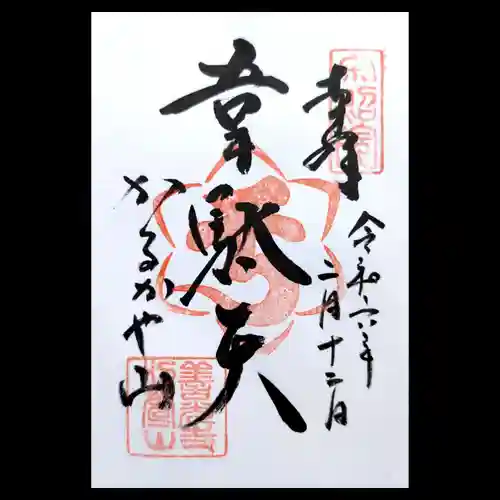 奉拝
令和六年
二月十二日
韋駄天
かるかや山
善光寺